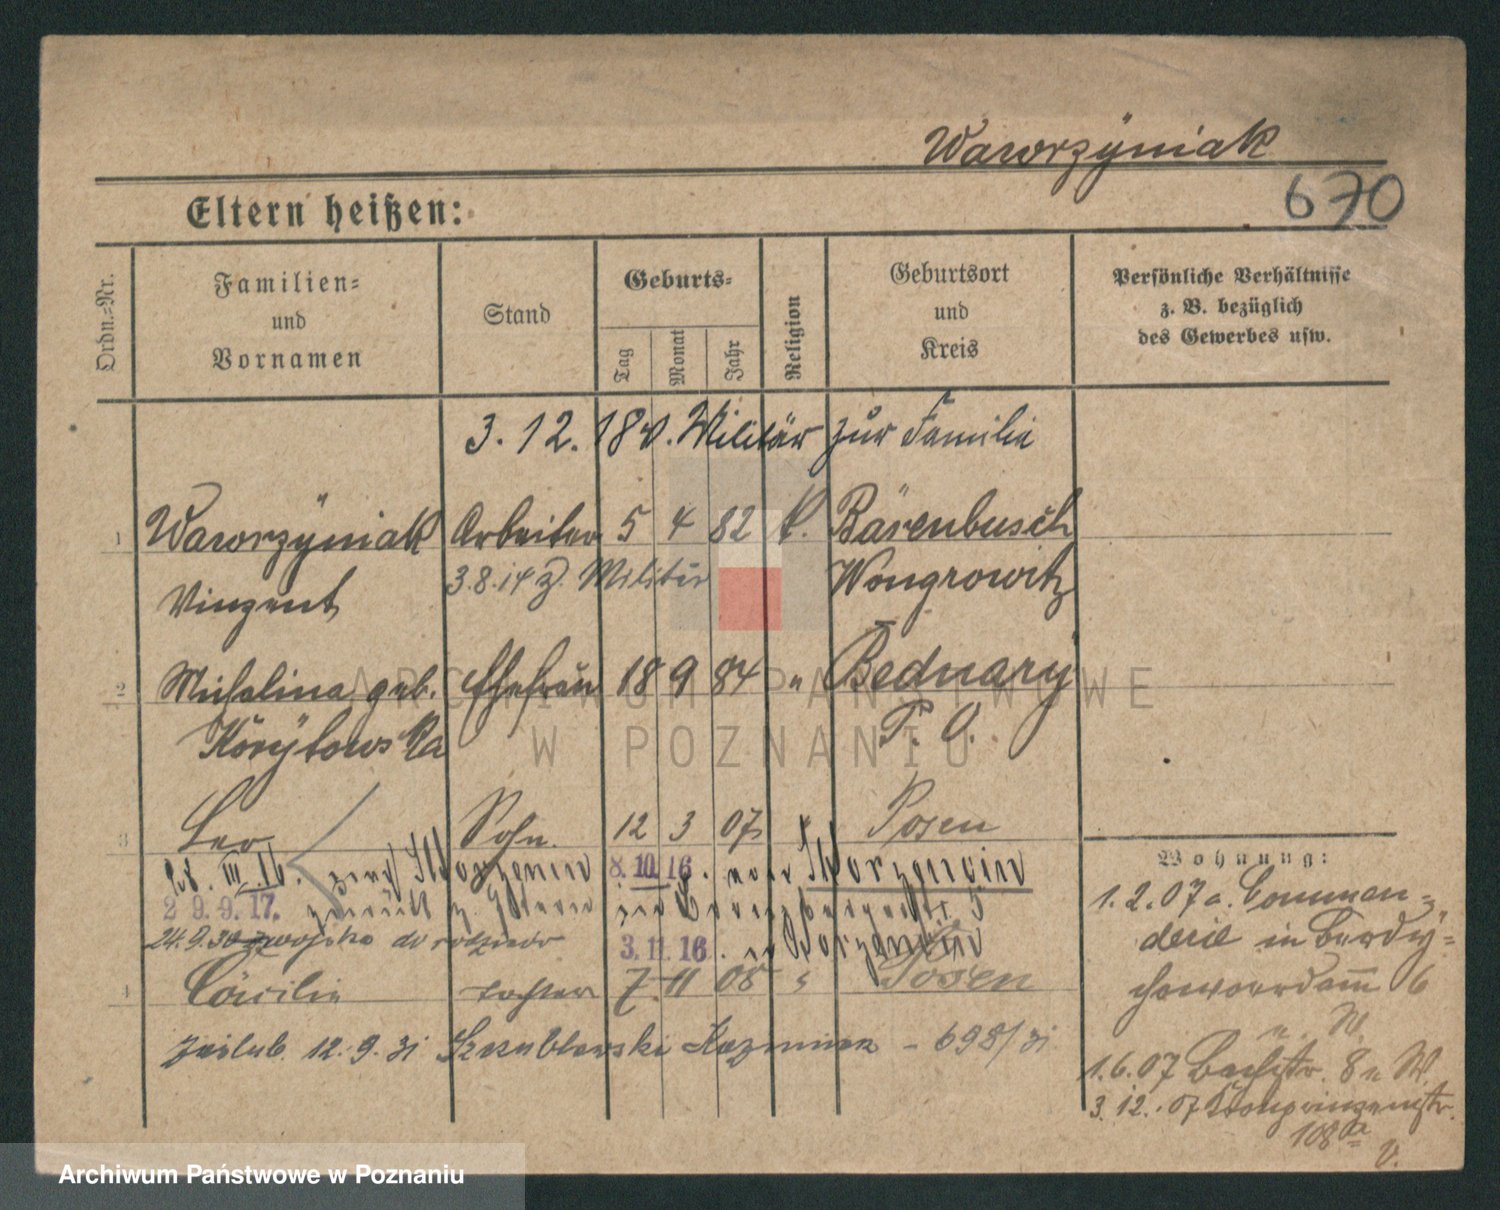 Wawrzÿniak
670
Eltern heißen:
Ordn.-Nr.
Familien-
und
Vornamen
Stand
Geburts-
Tag
Monat
Jahr
Religion
Geburtsort
und
Kreis
Persönliche Verhältnisse
z. B. bezüglich
des Gewerbes usw.
3. 12. 18 v. Militär zur Familie
1 Wawrzÿniak Arbeiter 5 4 82 k. Bärenbusch
3.8.14 z. Militär Wongrowitz
Vinzent
2 Michalina geb. Ehefrau 18 9 84 " Bednary
Korÿtowska P. O.
3 Leo Sohn 12 3 07 " Posen
III. 16. 8. 10. 16. nach Schwarzenau
29. 9. 17. zurück z. Eltern
24.9.30 z wojska do rodziców 3. 11. 16.
4 Cäcilie Tochter 7. 11 08 " Posen
zaślub. 12. 9. 31 Kazimierz - 698/31
Wohnung:
1. 2. 07 a. Comman-
derie in Berdÿ-
chowoerdamm 6
n. W.
1. 6. 07 Bachstr. 8 n. W.
3. 12. 07 Kronprinzenstr.
108a
V.
ARCHIWUM PAŃSTWOWE
W POZNANIU
Archiwum Państwowe w Poznaniu